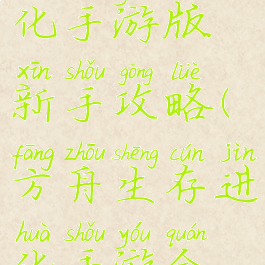 化手游版
xīn shǒu gōng lüè
新手攻略(
fāng zhōu shēng cún jìn
方舟生存进
huà shǒu yóu quán
化手游全